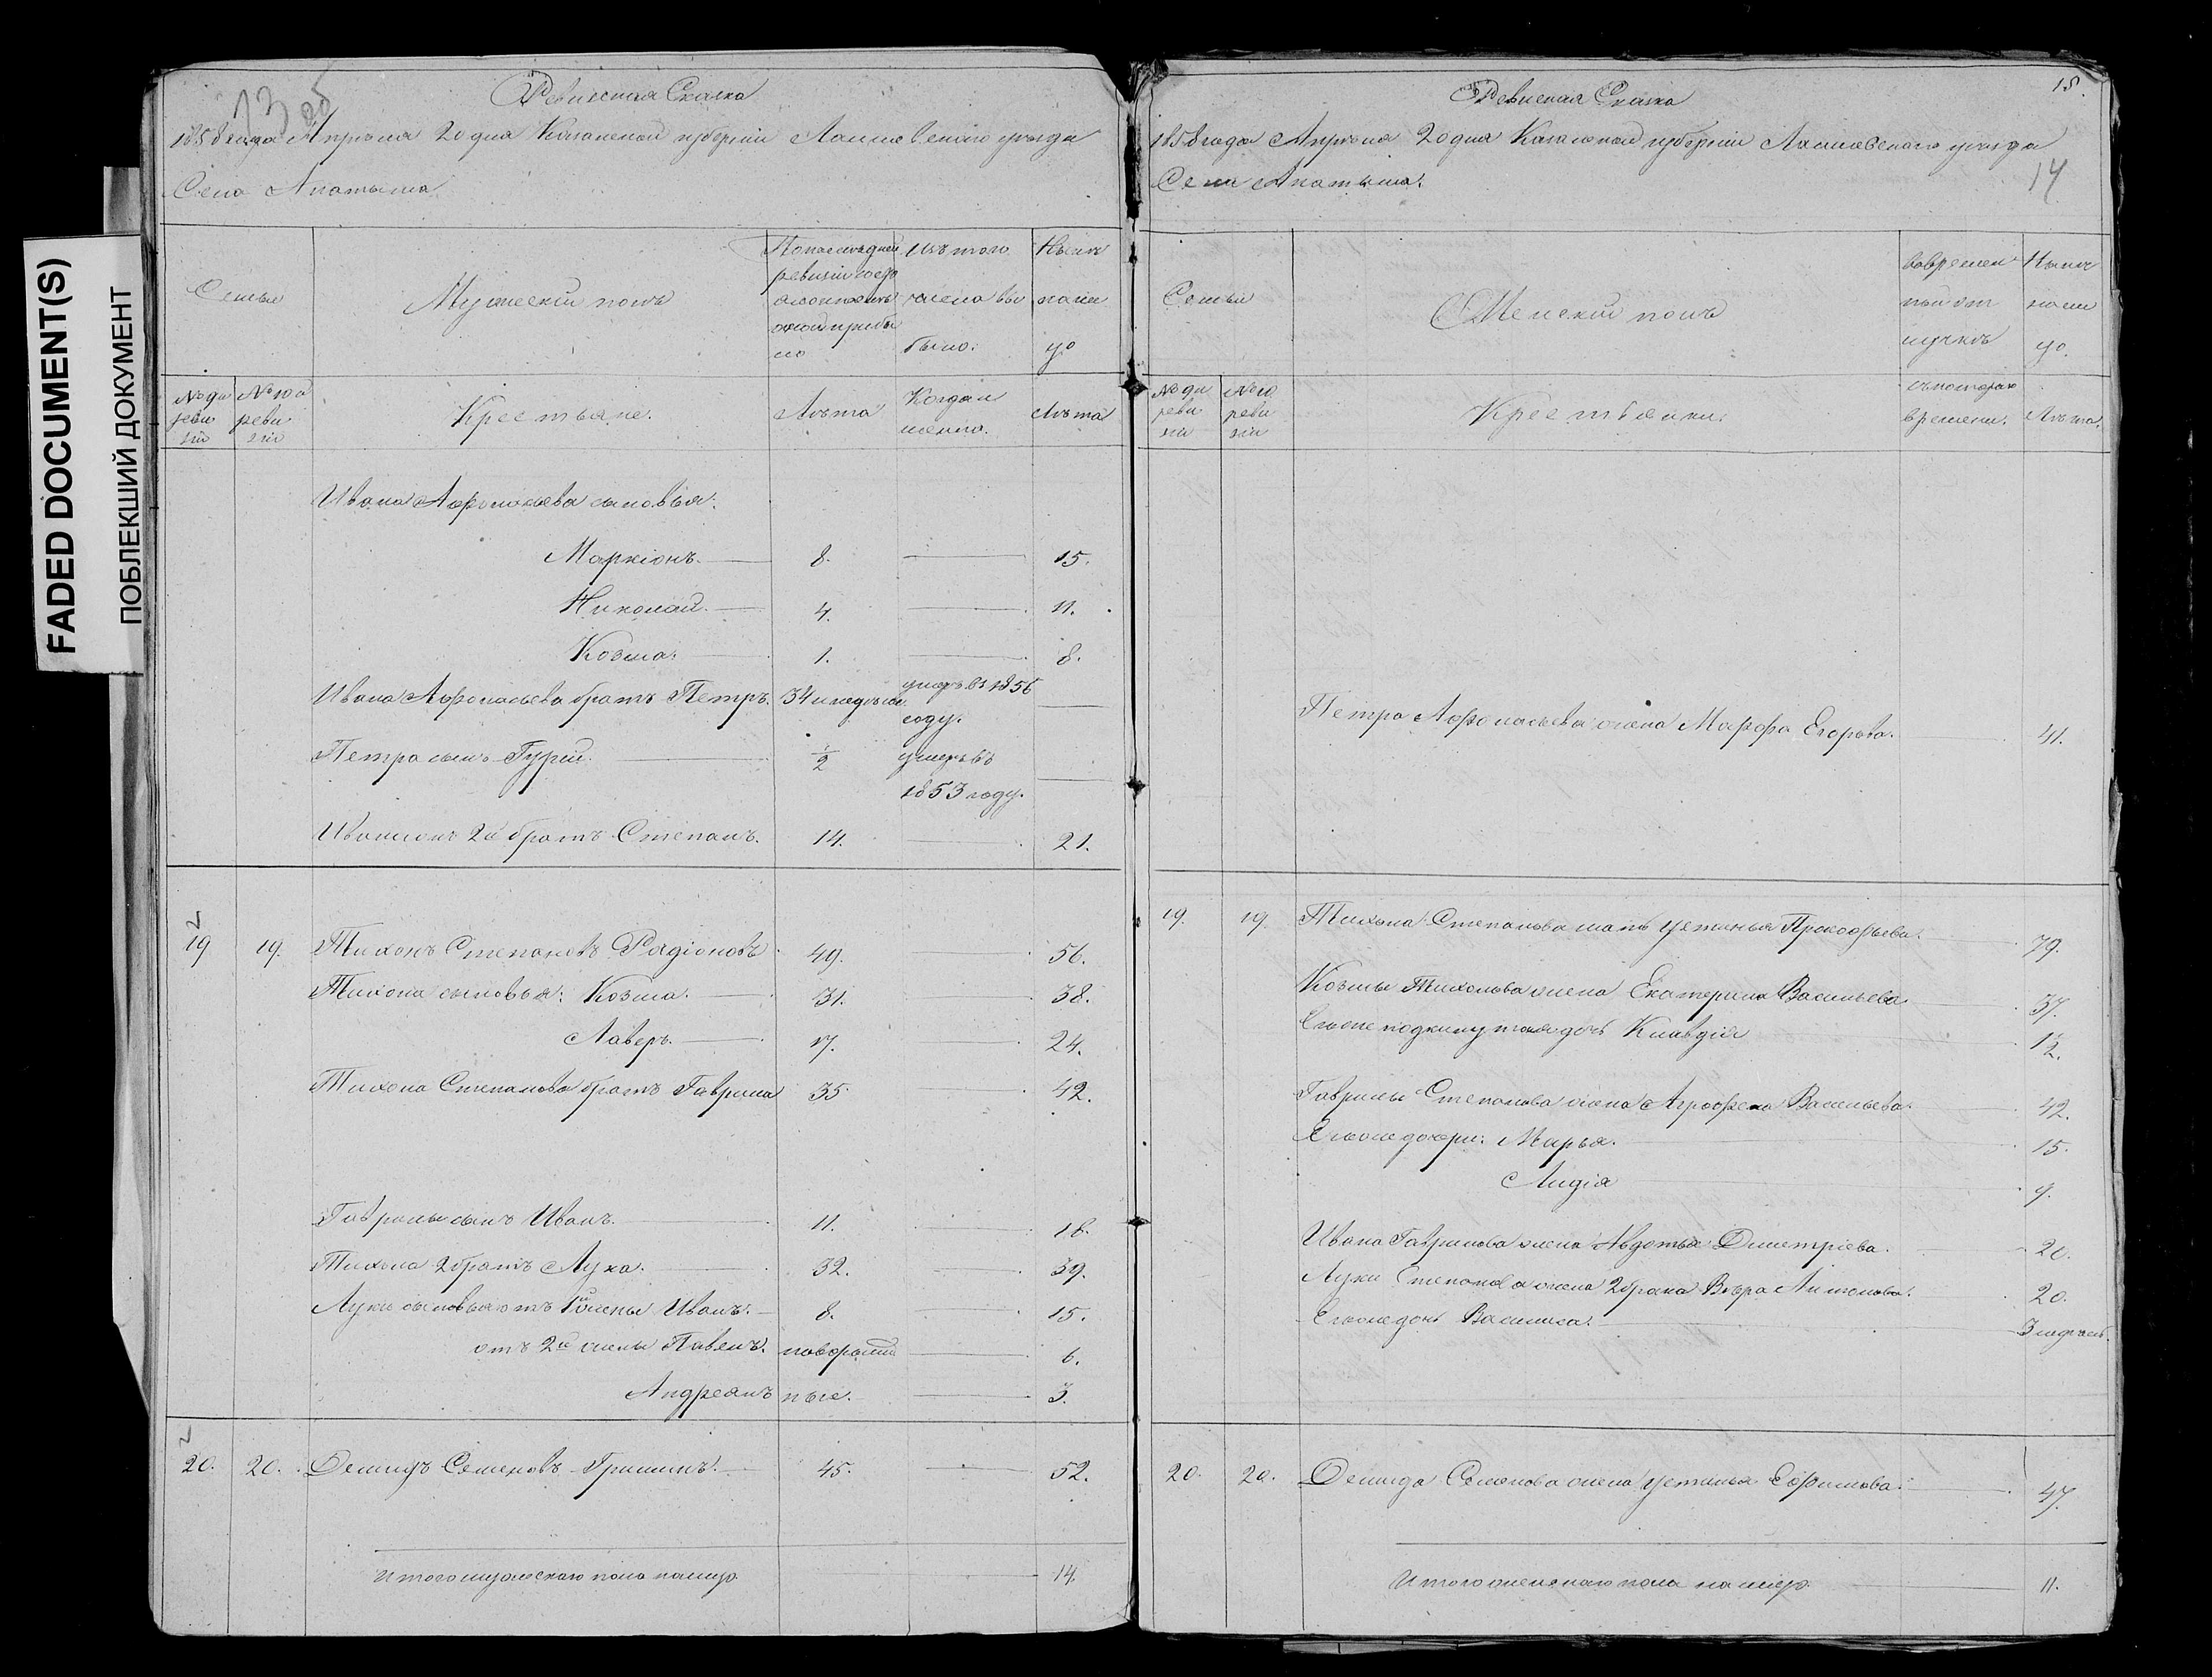 FADED DOCUMENT(S)
ПОБЛЕКШИЙ ДОКУМЕНТ
13 об
Ревизская Сказка
1858 года Апреля 20 дня Казанской губернии Лаишевского уезда
Села Анатыша
Семьи
Мужеской полъ
По последней ревизiи состояло и после оной прибыло
Изъ того числа выбыло.
Ныне на лицо
№ 9й ревизiи
№ 10й ревизiи
Крестьяне.
Лета
Когда именно.
Лета
Ивана Афонасьева сыновья:
Маркiонъ. 8. 15.
Николай. 4. 11.
Козма. 1. 8.
Ивана Афонасьева братъ Петръ. 34 умеръ въ 1856 году.
Петра сынъ Гурiй. 1/2 умеръ въ 1853 году.
Ивановъ 2й братъ Степанъ. 14. 21.
19 19. Тихонъ Степановъ Радiоновъ 49. 56.
Тихона сыновья: Козма. 31. 38.
Лаверъ. 17. 24.
Тихона Степанова братъ Гаврила 35 42.
Гаврилы сынъ Иванъ. 11. 18.
Тихона 2 братъ Лука. 32. 39.
Луки сыновья отъ 1й жены Иванъ. 8. 15.
отъ 2й жены Павелъ. новорожден 6.
Андреянъ ные. 3.
20. 20. Демидъ Семеновъ Гришинъ. 45. 52.
Итого мужескаго пола налицо 14.
18.
Ревизская Сказка
1858 года Апреля 20 дня Казанской губернии Лаишевскаго уезда
Села Анатыша.
14
Семьи
Женской полъ
Во временной отлучке
Ныне на лицо.
№ 9й ревизiи
№ 10 ревизiи
Крестьянки.
съ котораго времени.
Лета.
Петра Афонасьева жена Марфа Егорова. 41.
19. 19. Тихона Степанова мать Устинья Прокофьева. 79.
Козмы Тихонова жена Екатерина Васильева 37.
Ево же подкинутая дочь Клавдiя 1/2.
Гаврилы Степанова жена Аграфена Васильева. 42.
Его же дочери: Марья. 15.
Лидiя 9.
Ивана Гаврилова жена Авдотья Дметрiева. 20.
Луки Степанова жена 2 брака Вера Антонова. 20.
Его же дочь Василиса. 3 недель.
20. 20. Демида Семенова жена Устинья Ефимова. 47.
Итого женскаго пола на лицо. 11.